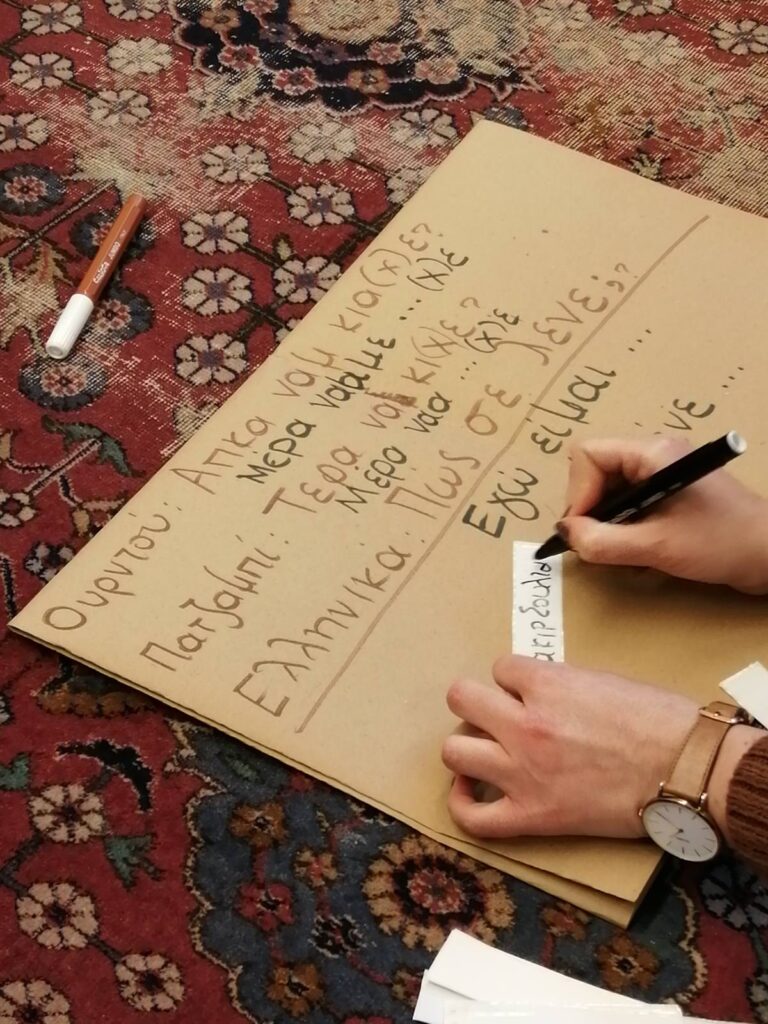 Ουρντού: Απκα ναμ κια(χ)ε?
Μερα νααμε ... (χ)ε
Παντζαμπί: Τερα να κι(χ)ε?
Μερο ναα ... (χ)ε
Ελληνικά: Πώς σε λένε;?
Εγώ είμαι ...
...